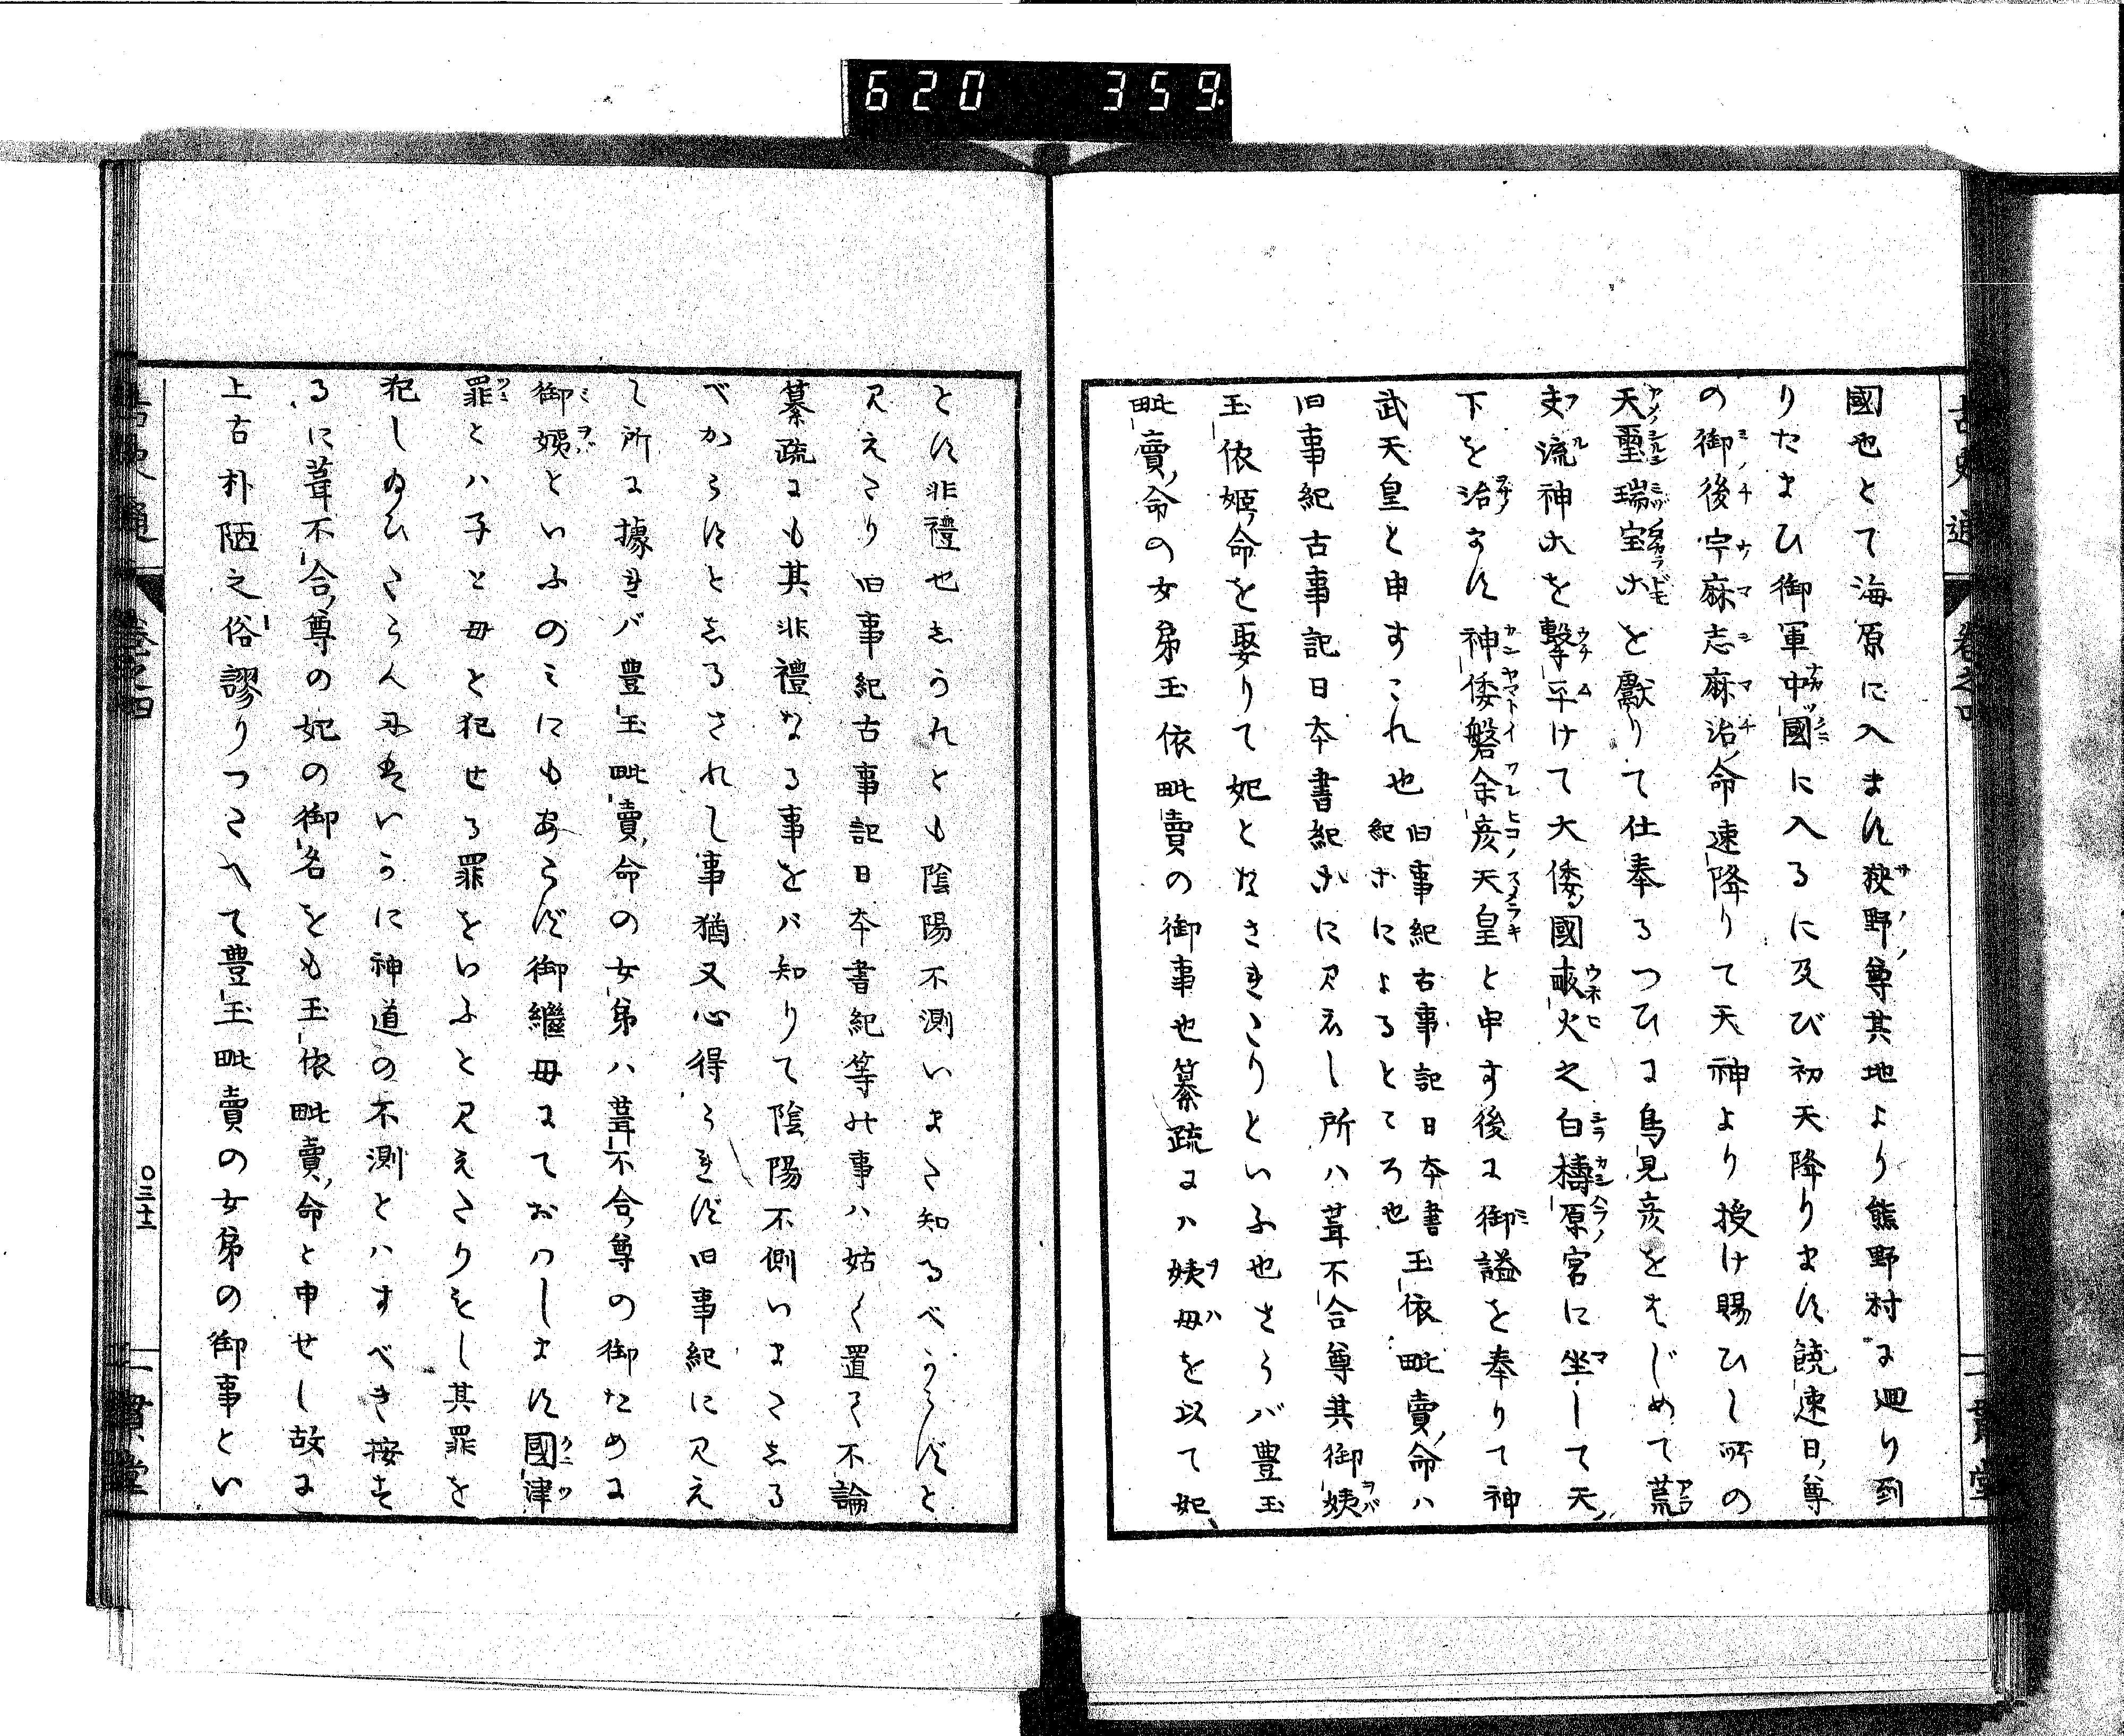 620 359
古史通 卷之四 一貫堂
國也とて海原に入ます狹野尊其地より熊野村に廻り到
りたまひ御軍中國に入るに及び初天降ります饒速日尊
の御後宇麻志麻治命速降りて天神より授け賜ひし所の
天璽瑞宝ホを獻りて仕奉るつひに鳥見彦をはじめて荒
流神ホを撃平けて大倭國畝火之白檮原宮に坐して天
下を治す神倭磐余彦天皇と申す後に御謚を奉りて神
武天皇と申すこれ也
旧事紀古事記日本書
紀ホによるところ也
玉依毗賣命ハ
旧事紀古事記日本書紀ホに見えし所ハ葺不合尊其御姨
玉依姬命を娶りて妃となさきたりといふ也さらバ豊玉
毗賣命の女弟玉依毗賣の御事也纂疏にハ姨母を以て妃
とす非禮也しかれとも陰陽不測いまた知るべからずと
見えたり旧事紀古事記日本書紀等の事ハ姑く置て不論
纂疏にも其非禮なる事をバ知りて陰陽不側いまたしる
べからずとしるされし事猶又心得られず旧事紀に見え
し所に據れバ豊玉毗賣命の女弟ハ葺不合尊の御ために
御姨といふのミにもあらず御継母にておハします國津
罪とハ子と母と犯せる罪をいふと見えたりもし其罪を
犯し給ひたらんにはいかに神道の不測とハすべき按す
るに葺不合尊の妃の御名をも玉依毗賣命と申せし故に
上古朴陋之俗謬りつたへて豊玉毗賣の女弟の御事とい
古史通 卷之四 〇三十二 一貫堂